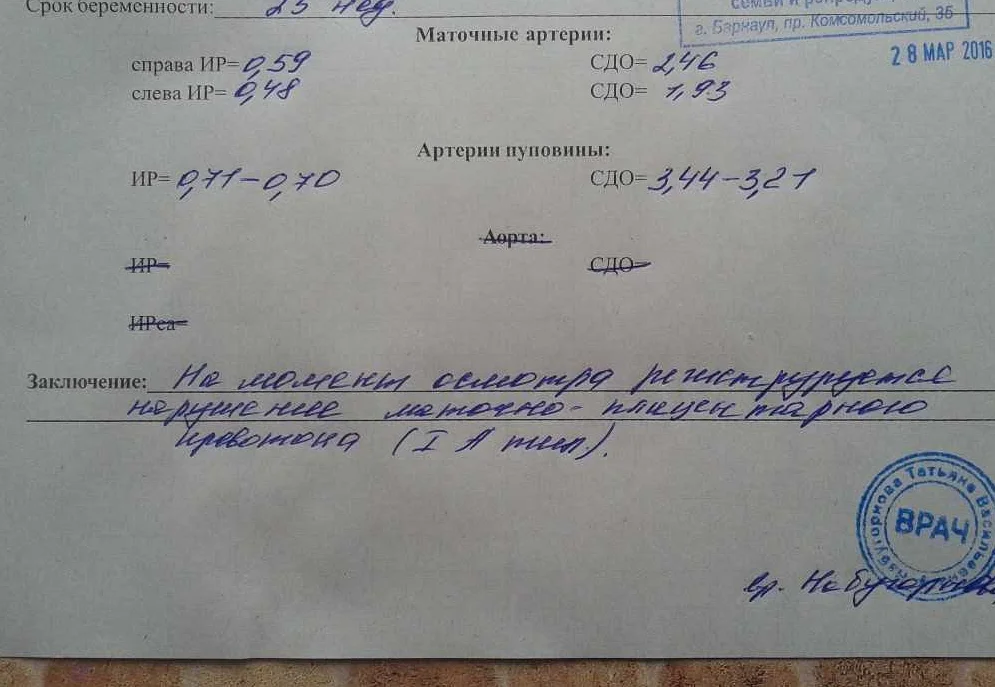 Срок беременности: 25 нед.
семьи и репродук
г. Барнаул, пр. Комсомольский, 35
28 МАР 2016
Маточные артерии:
справа ИР= 0,59 СДО= 2,46
слева ИР= 0,48 СДО= 1,93
Артерии пуповины:
ИР= 0,71-0,70 СДО= 3,44-3,21
Аорта:
ИР= СДО=
ИРса=
Заключение: На момент осмотра регистрируется
нарушение маточно-плацентарного
кровотока (I А тип).
Татьяна Васильевна
ВРАЧ
вр.